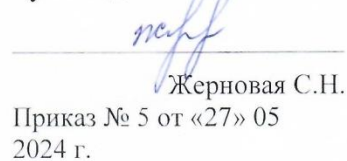 Жерновая С.Н.
Приказ № 5 от «27» 05
2024 г.